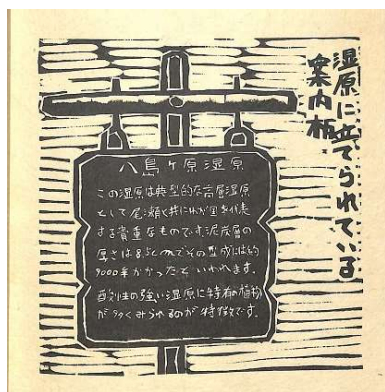 湿原に立てられている
案内板.
八島ヶ原湿原
この湿原は典型的な高層湿原
として尾瀬と共にわが国を代表
する貴重なものです。泥炭層の
厚さは8.5mでその型成には約
9000年かかったといわれます.
酸性の強い湿原に特有の植物
が多くみられるのが特徴です.